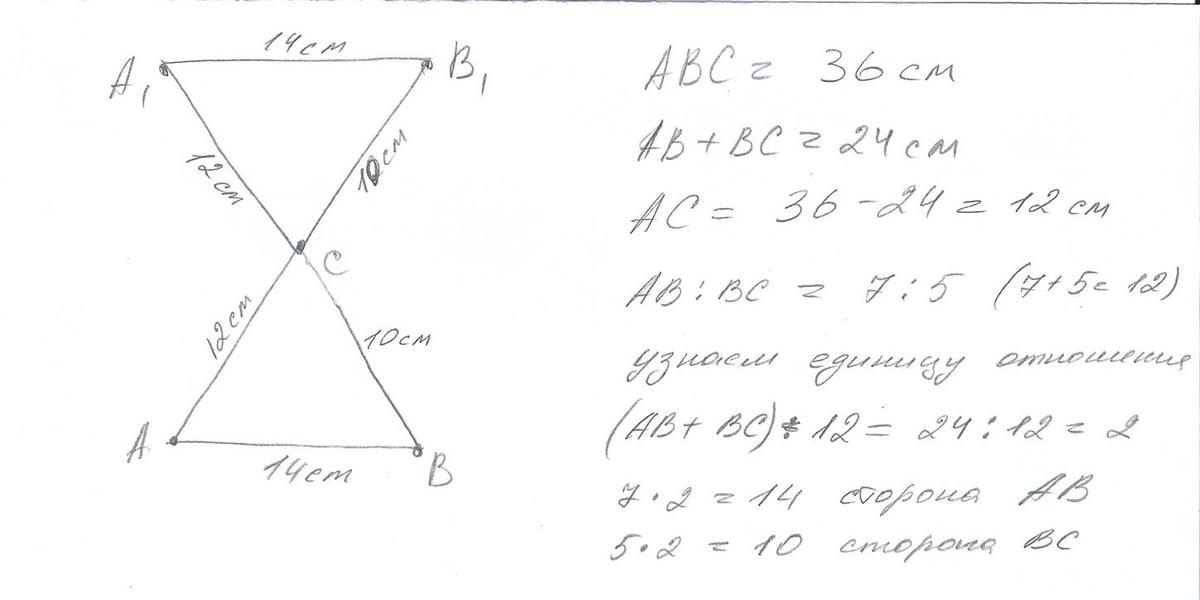 14см
A₁
B₁
12см
10см
C
12см
10см
A
14см
B
ABC = 36 см
AB + BC = 24 см
AC = 36 - 24 = 12 см
AB : BC = 7 : 5 (7+5=12)
узнаем единицу отношения
(AB + BC) : 12 = 24 : 12 = 2
7 · 2 = 14 сторона AB
5 · 2 = 10 сторона BC